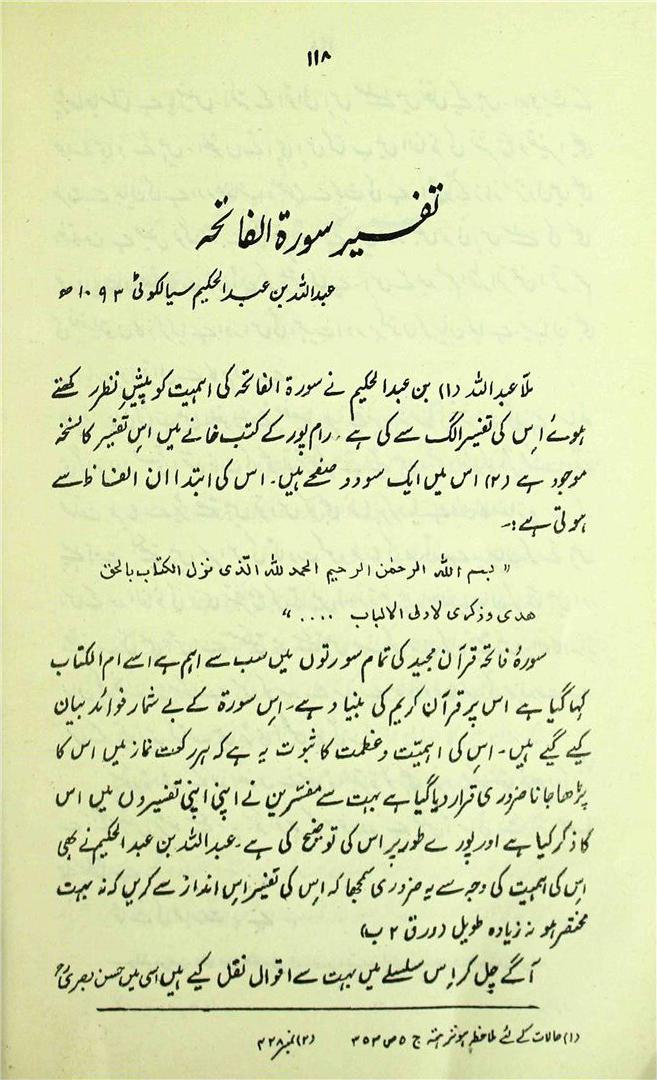 ۱۱۸
تفسیر سورۃ الفاتحہ
عبداللہ بن عبدالحکیم سیالکوٹی ۱۰۹۳ھ
ملّا عبداللہ (۱) بن عبدالحکیم نے سورۃ الفاتحہ کی اہمیت کو پیشِ نظر رکھتے
ہوئے اِس کی تفسیر الگ سے کی ہے۔ رام پور کے کتب خانے میں اس تفسیر کا نسخہ
موجود ہے (۲) اس میں ایک سو دو صفحے ہیں۔ اس کی ابتدا ان الفاظ سے
ہوتی ہے:۔
" بسم اللہ الرحمٰن الرحیم الحمد للہ الذی نزل الکتاب بالحق
ھدی وذکری لاولی الالباب .... "
سورۂ فاتحہ قرآن مجید کی تمام سورتوں میں سب سے اہم ہے اسے ام الکتاب
کہا گیا ہے اس پر قرآن کریم کی بنیاد ہے۔ اس سورۃ کے بے شمار فوائد بیان
کیے گیے ہیں۔ اس کی اہمیّت و عظمت کا ثبوت یہ ہے کہ ہر رکعت نماز میں اس کا
پڑھا جانا ضروری قرار دیا گیا ہے بہت سے مفسّرین نے اپنی اپنی تفسیروں میں اس
کا ذکر کیا ہے اور پورے طور پر اس کی توضیح کی ہے۔ عبداللہ بن عبدالحکیم نے بھی
اس کی اہمیت کی وجہ سے یہ ضروری سمجھا کہ اس کی تفسیر اس انداز سے کریں کہ نہ بہت
مختصر ہو نہ زیادہ طویل (ورق ۲ ب)
آگے چل کر اِس سلسلے میں بہت سے اقوال نقل کیے ہیں اسی میں حسن بصریؒ
(۱) حالات کے لئے ملاحظہ ہو نزہتہ ج ۵ ص ۲۵۳ (۲) نمبر ۲۲۸